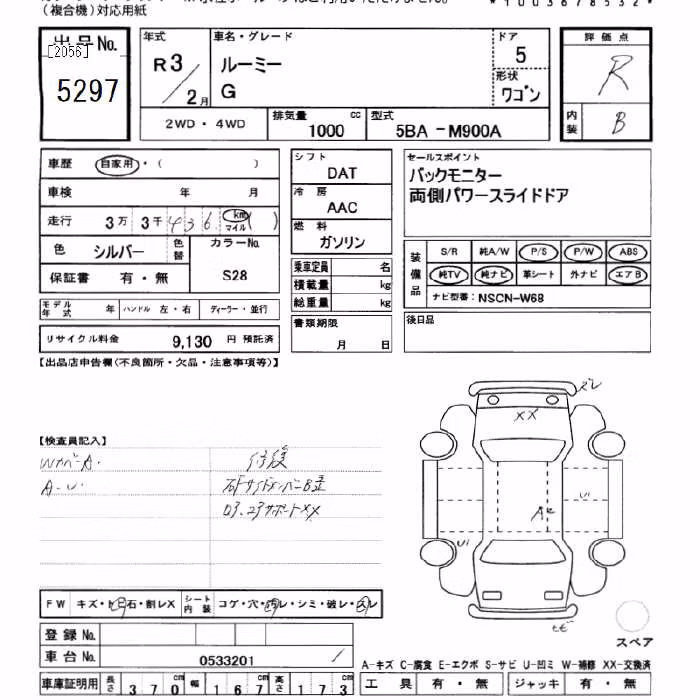 (複合機)対応用紙
*1003678532*
出品No.
[2056]
5297
年式
R3
2月
車名・グレード
ルーミー
G
ドア
5
形状
ワゴン
2WD・4WD
排気量 cc
1000
型式
5BA -M900A
評価点
R
内装
B
車歴 自家用・( )
車検 年 月
走行 3万 3千 436 km マイル ( )
色 シルバー 色替
カラーNo.
S28
保証書 有・無
モデル年式 年 ハンドル 左・右 ディーラー・並行
リサイクル料金 9,130 円 預託済
シフト
DAT
冷房
AAC
燃料
ガソリン
乗車定員 名
積載量 kg
総重量 kg
書類期限
月 日
セールスポイント
バックモニター
両側パワースライドドア
装備品
S/R 純A/W P/S P/W ABS
純TV 純ナビ 革シート 外ナビ エアB
ナビ型番：NSCN-W68
後日品
【出品店申告欄(不良箇所・欠品・注意事項等)】
【検査員記入】
A-U.
修復
03.23サポートXX
ズレ
XX
U1
U1
FW キズ・ヒビ石・割レX シート内装 コゲ・穴・汚レ・シミ・破レ・スレ
登録No.
車台No. 0533201
スペア
A-キズ C-腐食 E-エクボ S-サビ U-凹ミ W-補修 XX-交換済
車庫証明用 長さ 370cm 幅 167cm 高さ 173cm
工具 有・無 ジャッキ 有・無